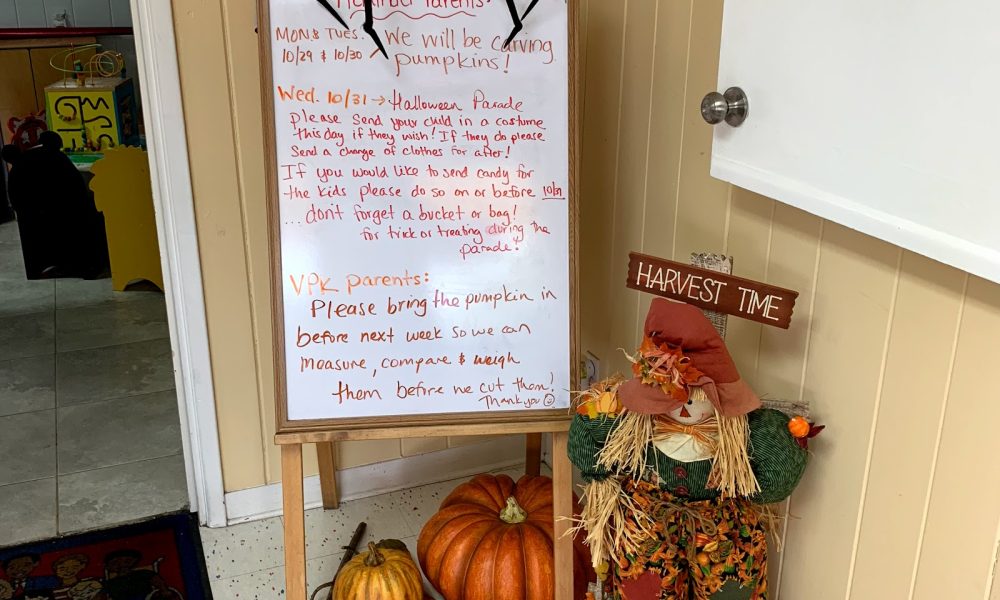 Remember Parents:
MON & TUES.
10/29 & 10/30
We will be carving
pumpkins!
Wed. 10/31 → Halloween Parade
please send your child in a costume
this day if they wish! If they do please
send a change of clothes for after!
If you would like to send candy for
the kids please do so on or before 10/31
...don't forget a bucket or bag!
for trick or treating during the
parade!
VPK parents:
Please bring the pumpkin in
before next week so we can
measure, compare & weigh
them before we cut them!
Thank you ☺
HARVEST TIME